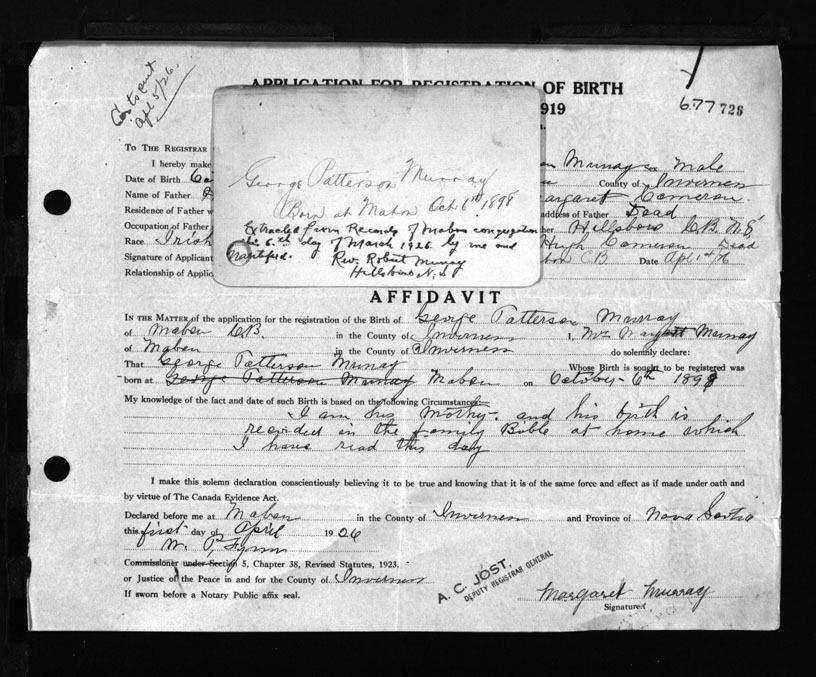 Certs sent
Apl 5/26.
APPLICATION FOR REGISTRATION OF BIRTH
1919
677 726
TO THE REGISTRAR
I hereby make Murray Male
Date of Birth County of Inverness
Name of Father Margaret Cameron
Residence of Father address of Father Dead
Occupation of Father Hillsboro C.B. N.S.
Race Irish Hugh Cameron Dead
Signature of Applicant C.B. Date Apl 1st/26
Relationship of Applic
George Patterson Murray
Born at Mabou Oct. 6th 1898
Extracted from Records of Mabou congregation
this 6th day of March 1926 by me and
Rev. Robert Murray
Hillsboro N.S
AFFIDAVIT
IN THE MATTER of the application for the registration of the Birth of George Patterson Murray
of Mabou C.B. in the County of Inverness I, Mrs Margaret Murray
of Mabou in the County of Inverness do solemnly declare:
That George Patterson Murray Whose Birth is sought to be registered was
born at George Patterson Murray Mabou on October 6th 1898
My knowledge of the fact and date of such Birth is based on the following Circumstances
I am his Mother and his birth is
recorded in the family Bible at home which
I have read this day
I make this solemn declaration conscientiously believing it to be true and knowing that it is of the same force and effect as if made under oath and
by virtue of The Canada Evidence Act.
Declared before me at Mabou in the County of Inverness and Province of Nova Scotia
this first day of April 1926
Commissioner under Section 5, Chapter 38, Revised Statutes, 1923.
or Justice of the Peace in and for the County of Inverness
If sworn before a Notary Public affix seal.
A. C. JOST,
DEPUTY REGISTRAR GENERAL
Margaret Murray
Signature